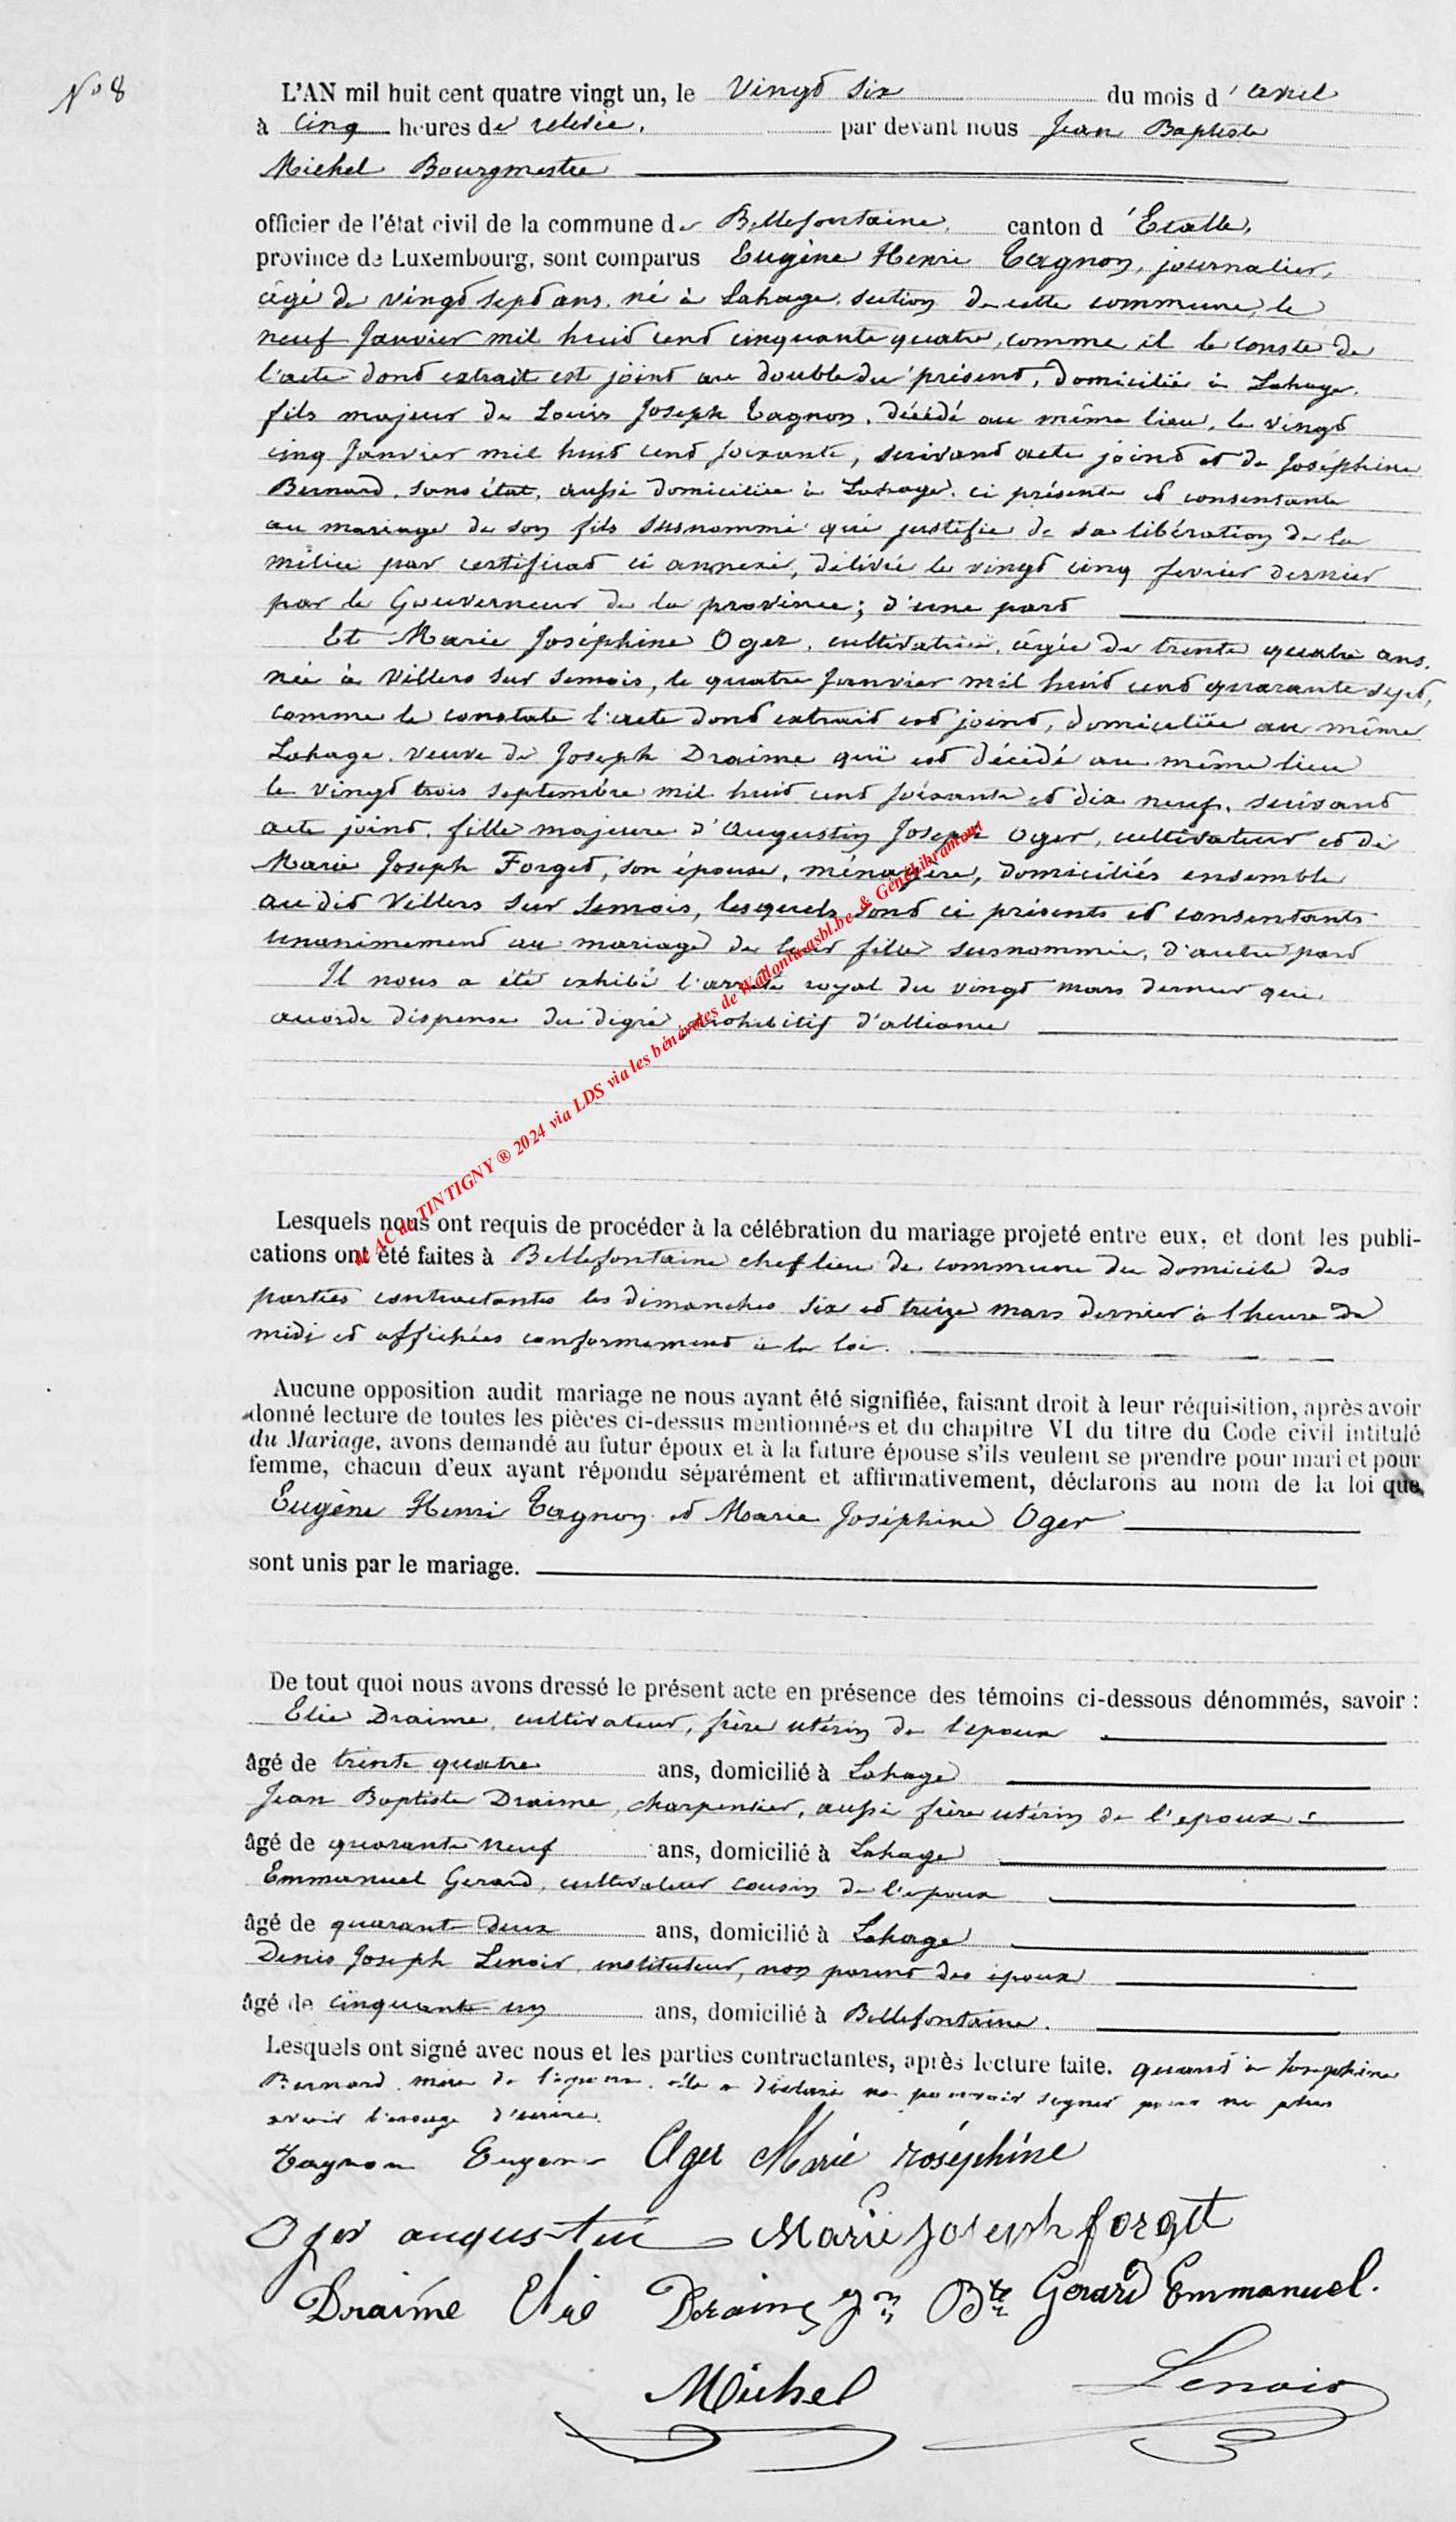 No 8
L'AN mil huit cent quatre vingt un, le vingt six du mois d'avril
à cinq heures de relevée, par devant nous Jean Baptiste
Michel Bourgmestre
officier de l'état civil de la commune de Bellefontaine, canton d'Etalle,
province de Luxembourg, sont comparus Eugène Henri Tagnon, journalier,
âgé de vingt sept ans, né à Lahage, section de cette commune, le
neuf Janvier mil huit cent cinquante quatre, comme il le conste de
l'acte dont extrait est joint au double du présent, domicilié à Lahage,
fils majeur de Louis Joseph Tagnon, décédé au même lieu, le vingt
cinq Janvier mil huit cent soixante, suivant acte joint et de Joséphine
Bernard, sans état, aussi domiciliée à Lahage, ci présente et consentante
au mariage de son fils susnommé qui justifie de sa libération de la
milice par certificat ci annexé, délivré le vingt cinq fevrier dernier
par le Gouverneur de la province; d'une part
Et Marie Joséphine Oger, cultivatrice, âgée de trente quatre ans,
née à Villers sur Semois, le quatre Janvier mil huit cent quarante sept,
comme le constate l'acte dont extrait est joint, domiciliée au même
Lahage, veuve de Joseph Draime qui est décédé au même lieu
le vingt trois septembre mil huit cent soixante et dix neuf, suivant
acte joint, fille majeure d'Augustin Joseph Oger, cultivateur et de
Marie Joseph Forget, son épouse, ménagère, domiciliés ensemble
au dit Villers sur Semois, lesquels sont ci présents et consentants
unanimement au mariage de leur fille susnommée, d'autre part
Il nous a été exhibé l'arrêté royal du vingt mars dernier qui
accorde dispense du degré prohibitif d'alliance
AC de TINTIGNY ® 2024 via LDS via les bénévoles de Wallonia-asbl.be & GénéLibramont
Lesquels nous ont requis de procéder à la célébration du mariage projeté entre eux, et dont les publi-
cations ont été faites à Bellefontaine chef lieu de commune du domicile des
parties contractantes les dimanches six et treize mars dernier à l'heure de
midi et affichées conformement à la loi.
Aucune opposition audit mariage ne nous ayant été signifiée, faisant droit à leur réquisition, après avoir
donné lecture de toutes les pièces ci-dessus mentionnées et du chapitre VI du titre du Code civil intitulé
du Mariage, avons demandé au futur époux et à la future épouse s'ils veulent se prendre pour mari et pour
femme, chacun d'eux ayant répondu séparément et affirmativement, déclarons au nom de la loi que
Eugène Henri Tagnon et Marie Joséphine Oger
sont unis par le mariage.
De tout quoi nous avons dressé le présent acte en présence des témoins ci-dessous dénommés, savoir :
Elie Draime, cultivateur, frère utérin de l'epoux
âgé de trente quatre ans, domicilié à Lahage
Jean Baptiste Draime, charpentier, aussi frère utérin de l'epoux
âgé de quarante neuf ans, domicilié à Lahage
Emmanuel Gerard, cultivateur cousin de l'epoux
âgé de quarante deux ans, domicilié à Lahage
Denis Joseph Lenoir, instituteur, non parent des époux
âgé de cinquante un ans, domicilié à Bellefontaine.
Lesquels ont signé avec nous et les parties contractantes, après lecture faite. quant à Josephine
Bernard, mère de l'epoux, elle a déclaré ne pouvoir signer pour ne plus
avoir l'usage d'écrire.
Tagnon Eugene Oger Marie Joséphine
Oger augustin Marie Joseph forget
Draime Elie Draime Jn Bte Gerard Emmanuel.
Michel Lenoir